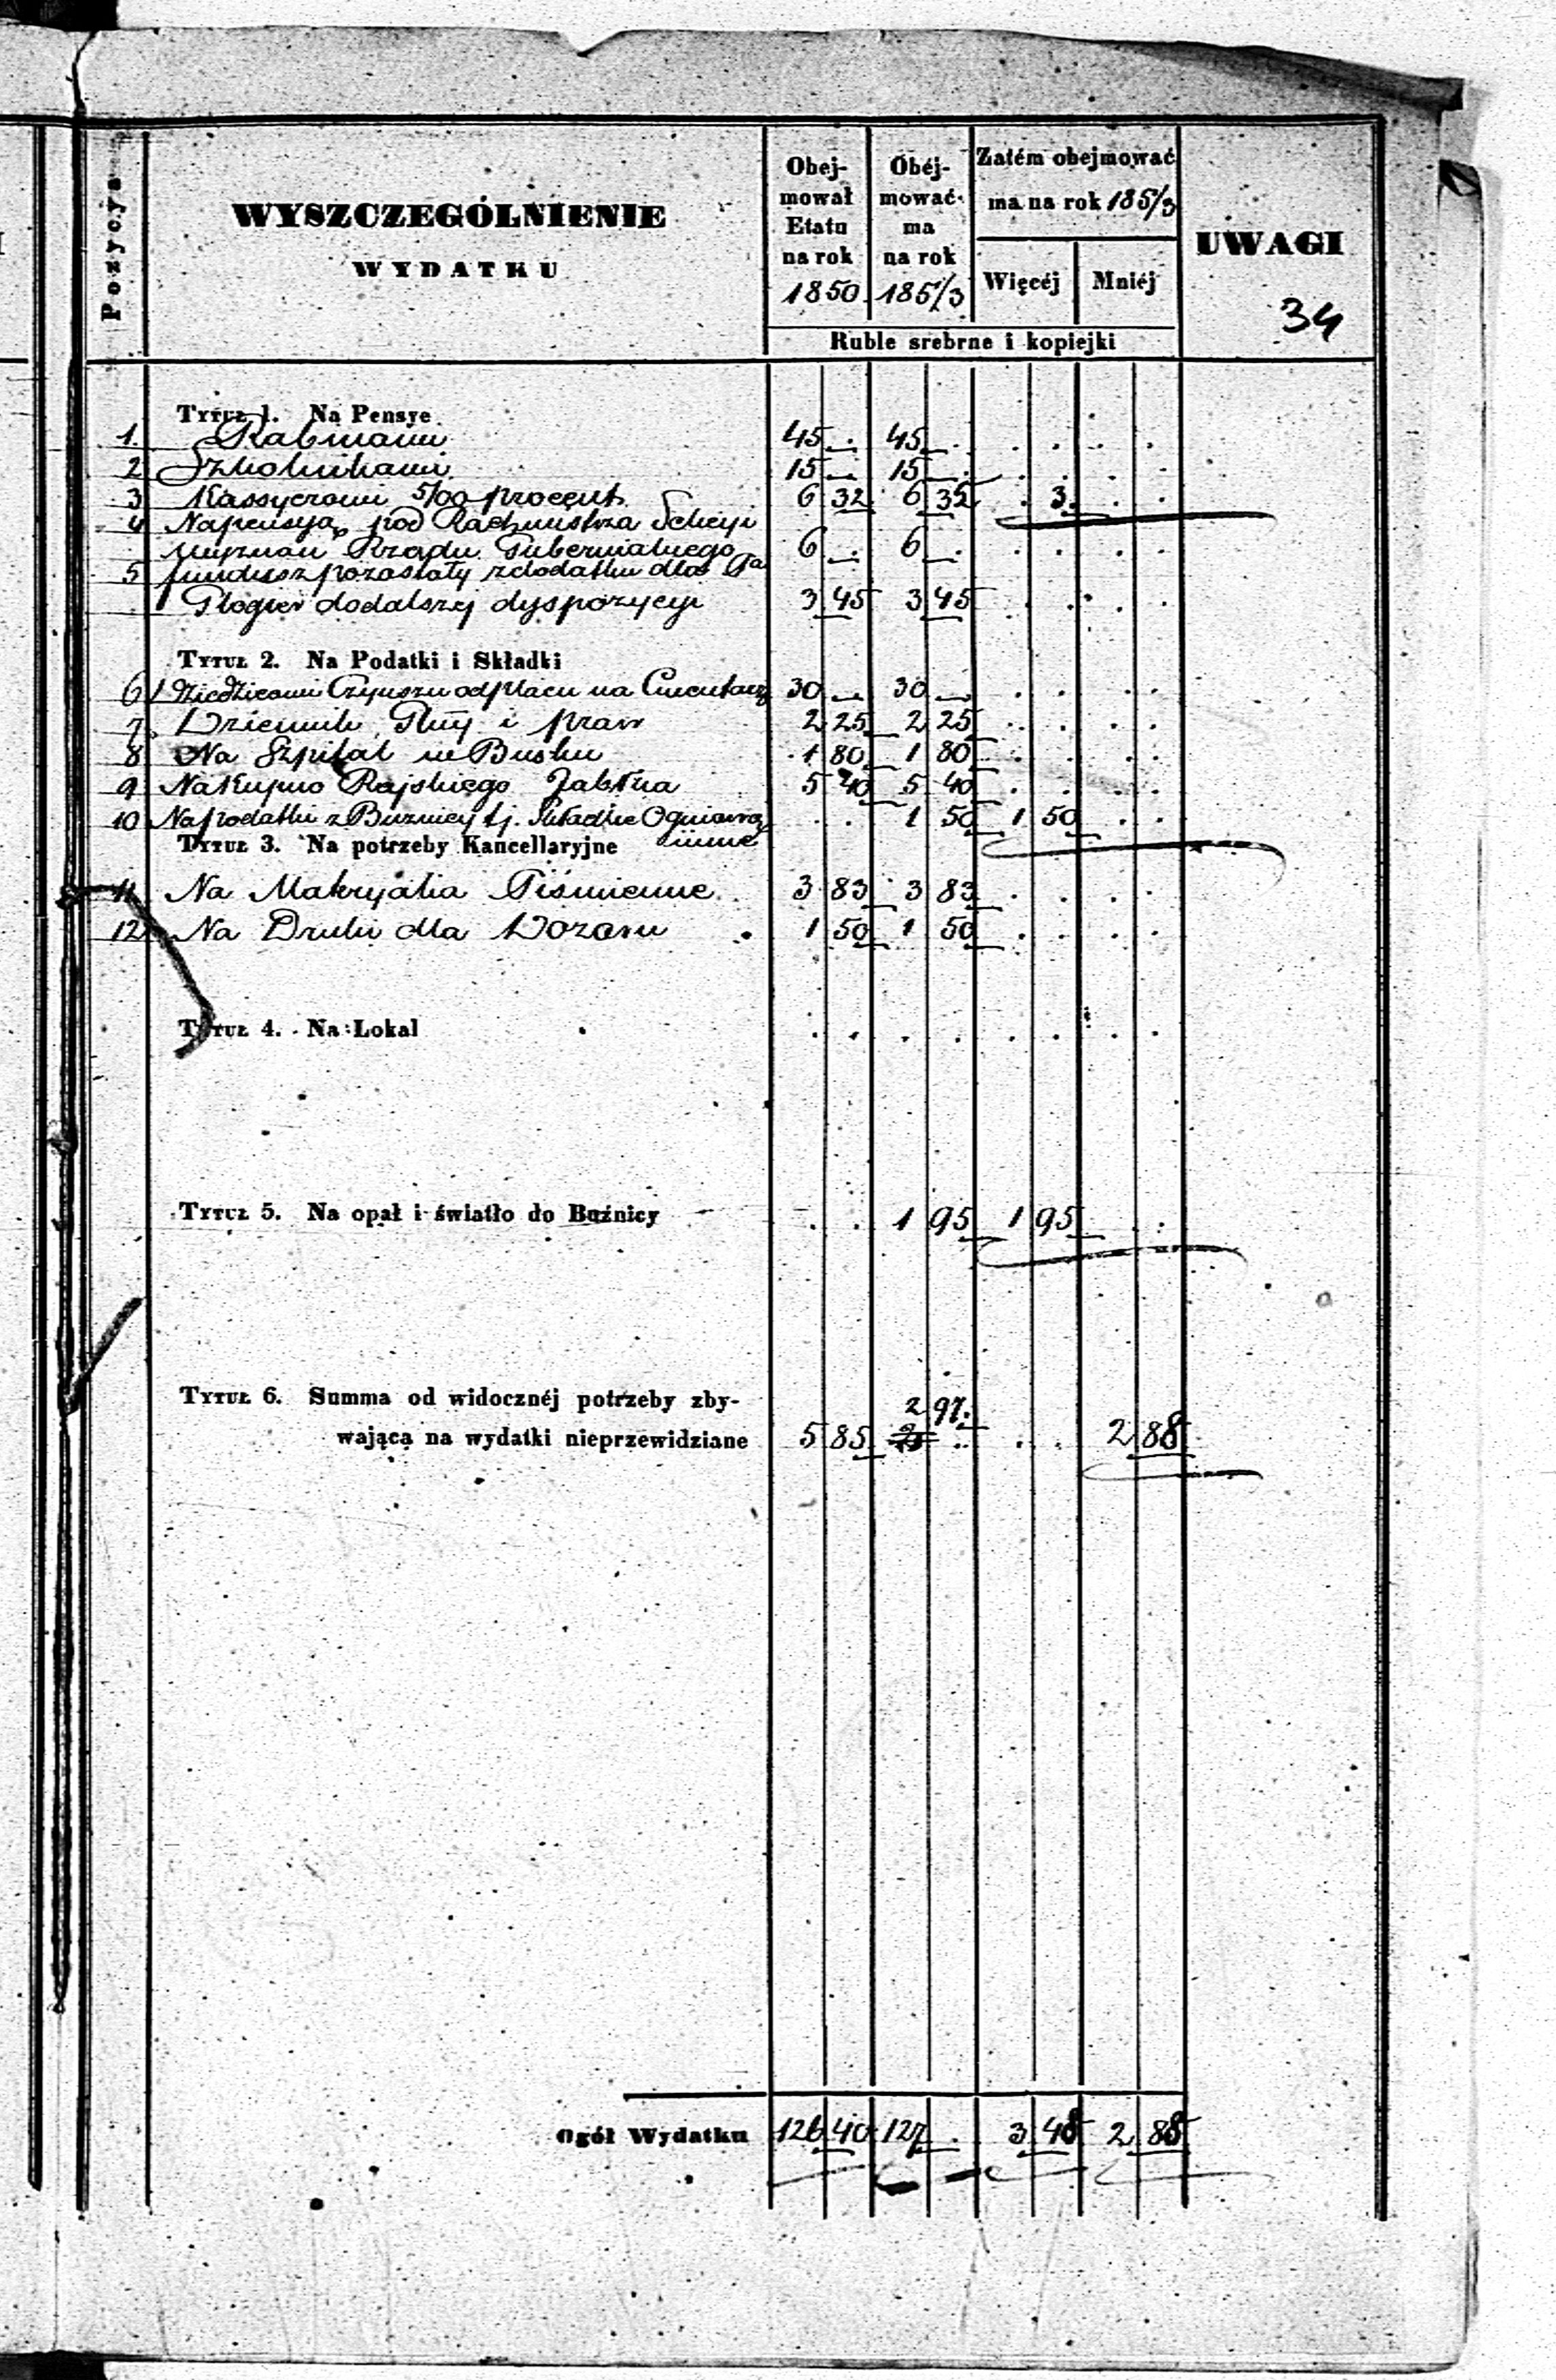 Pozycya
WYSZCZEGÓLNIENIE
WYDATKU
Obej-
mował
Etatu
na rok
1850
Obéj-
mować
ma
na rok
185 1/3
Zatém obejmować
ma na rok 185 1/3
Więcéj Mniéj
Ruble srebrne i kopiejki
UWAGI
34
Tytuł 1. Na Pensye
1. Rabinowi 45 — 45 —
2 Szkolnikowi 15 — 15 —
3 Kassyerowi 5/00 procent 6 32 6 35 . 3
4 Na pensyą pod Rachmistrza Sekcyi
Rządu Gubernialnego 6 — 6 —
5 fundusz pozostały z dodatku dla
do dalszej dyspozycyi 3 45 3 45
Tytuł 2. Na Podatki i Składki
6 Dziedzicowi Czynszu od placu na 30 — 30 —
7 Dziennik i praw 2 25 2 25
8 Na Szpital w Busku 1 80 1 80
9 Na Kupno Rajskiego Jabłka 5 40 5 40
10 Na podatki z Buznicy tj. Składkę Ogniową . . 1 50 1 50
i inne
Tytuł 3. Na potrzeby Kancellaryjne
11 Na Materyalia Piśmienne 3 83 3 83
12 Na Druki dla Dozoru 1 50 1 50
Tytuł 4. Na Lokal
Tytuł 5. Na opał i światło do Buźnicy . . 1 95 1 95
Tytuł 6. Summa od widocznéj potrzeby zby-
2 97
wająca na wydatki nieprzewidziane 5 85 . . 2 88
Ogół Wydatku 126 40 127 . 3 48 2 88